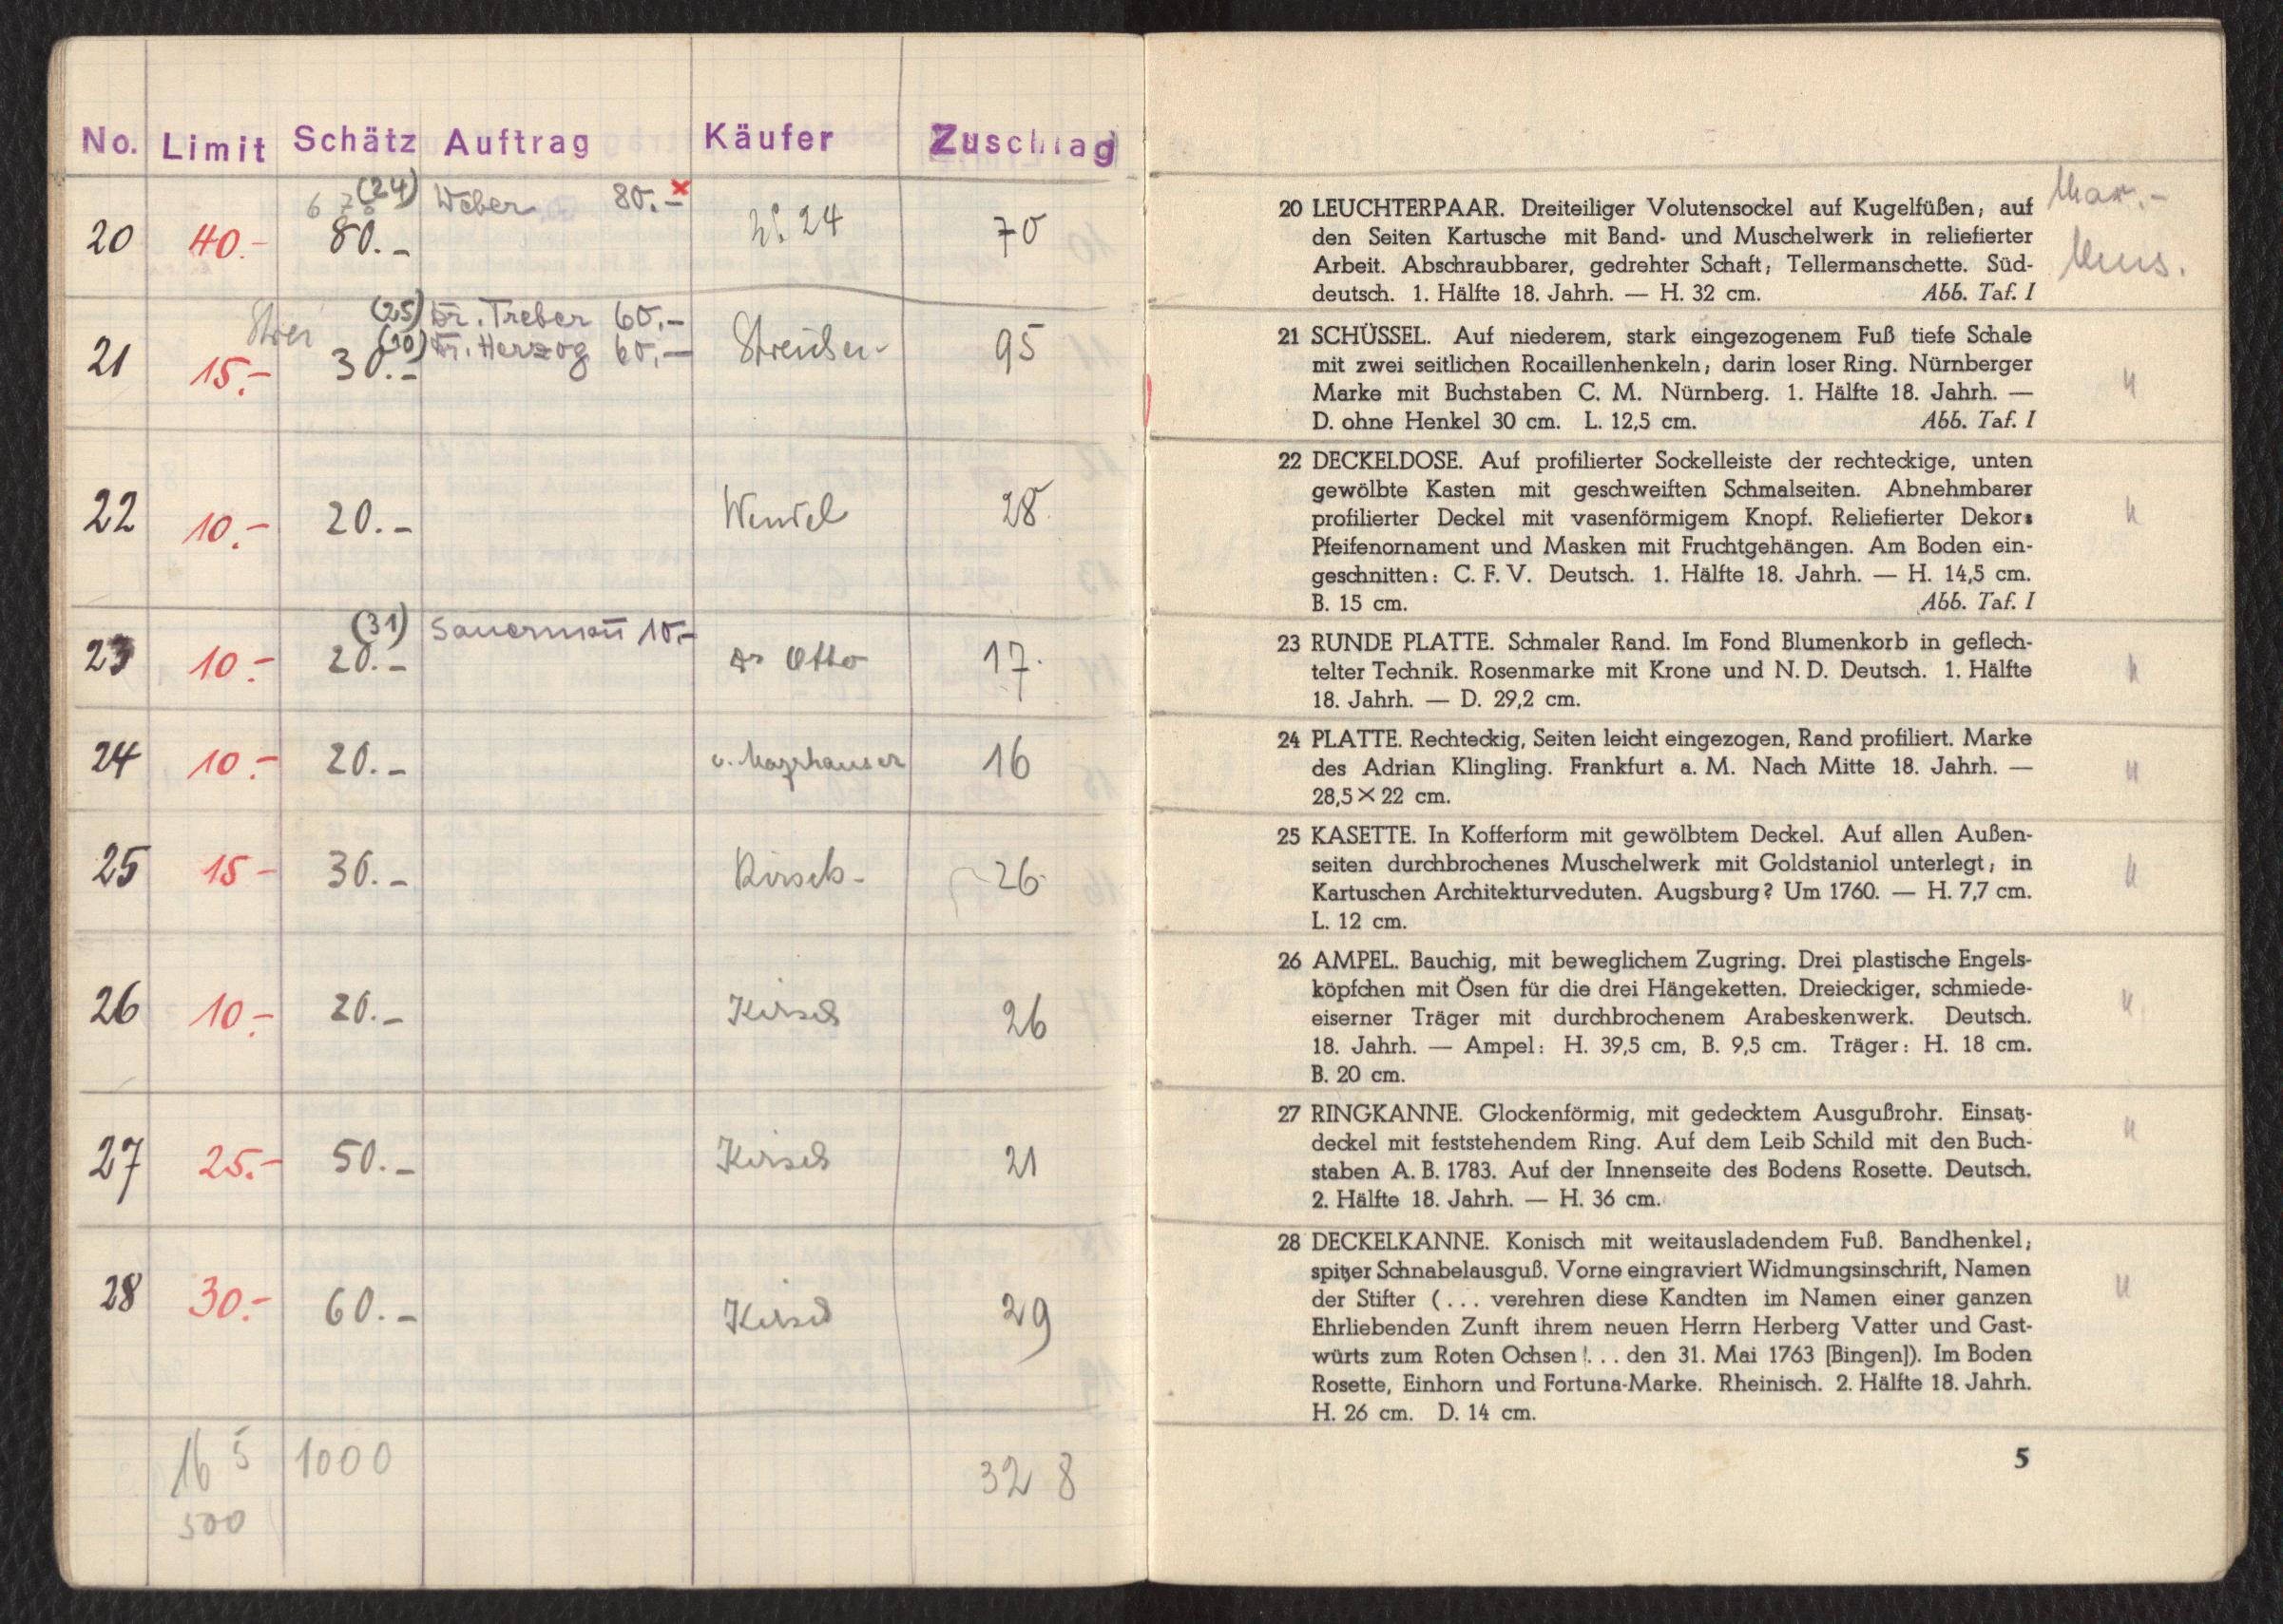 No. Limit Schätz Auftrag Käufer Zuschlag
(24) Weber 80.- x
20 40.- 80.- No 24 70
(25) Dr. Treber 60.-
(30) Dr. Herzog 60.-
21 15.- 30.- 95
22 10.- 20.- Wendel 28
(31) Sauermann 10.-
23 10.- 20.- Dr Otto 17.
24 10.- 20.- v. Mayrhauser 16
25 15.- 30.- Kirsch 26
26 10.- 20.- Kirsch 26
27 25.- 50.- Kirsch 21
28 30.- 60.- Kirsch 29
165 1000 328
500
20 LEUCHTERPAAR. Dreiteiliger Volutensockel auf Kugelfüßen; auf
den Seiten Kartusche mit Band- und Muschelwerk in reliefierter
Arbeit. Abschraubbarer, gedrehter Schaft; Tellermanschette. Süd-
deutsch. 1. Hälfte 18. Jahrh. — H. 32 cm. Abb. Taf. I
Mus.
21 SCHÜSSEL. Auf niederem, stark eingezogenem Fuß tiefe Schale
mit zwei seitlichen Rocaillenhenkeln; darin loser Ring. Nürnberger
Marke mit Buchstaben C. M. Nürnberg. 1. Hälfte 18. Jahrh. —
D. ohne Henkel 30 cm. L. 12,5 cm. Abb. Taf. I
22 DECKELDOSE. Auf profilierter Sockelleiste der rechteckige, unten
gewölbte Kasten mit geschweiften Schmalseiten. Abnehmbarer
profilierter Deckel mit vasenförmigem Knopf. Reliefierter Dekor:
Pfeifenornament und Masken mit Fruchtgehängen. Am Boden ein-
geschnitten: C. F. V. Deutsch. 1. Hälfte 18. Jahrh. — H. 14,5 cm.
B. 15 cm. Abb. Taf. I
23 RUNDE PLATTE. Schmaler Rand. Im Fond Blumenkorb in geflech-
telter Technik. Rosenmarke mit Krone und N. D. Deutsch. 1. Hälfte
18. Jahrh. — D. 29,2 cm.
24 PLATTE. Rechteckig, Seiten leicht eingezogen, Rand profiliert. Marke
des Adrian Klingling. Frankfurt a. M. Nach Mitte 18. Jahrh. —
28,5 × 22 cm.
25 KASETTE. In Kofferform mit gewölbtem Deckel. Auf allen Außen-
seiten durchbrochenes Muschelwerk mit Goldstaniol unterlegt; in
Kartuschen Architekturveduten. Augsburg? Um 1760. — H. 7,7 cm.
L. 12 cm.
26 AMPEL. Bauchig, mit beweglichem Zugring. Drei plastische Engels-
köpfchen mit Ösen für die drei Hängeketten. Dreieckiger, schmiede-
eiserner Träger mit durchbrochenem Arabeskenwerk. Deutsch.
18. Jahrh. — Ampel: H. 39,5 cm, B. 9,5 cm. Träger: H. 18 cm.
B. 20 cm.
27 RINGKANNE. Glockenförmig, mit gedecktem Ausgußrohr. Einsatz-
deckel mit feststehendem Ring. Auf dem Leib Schild mit den Buch-
staben A. B. 1783. Auf der Innenseite des Bodens Rosette. Deutsch.
2. Hälfte 18. Jahrh. — H. 36 cm.
28 DECKELKANNE. Konisch mit weitausladendem Fuß. Bandhenkel;
spitzer Schnabelausguß. Vorne eingraviert Widmungsinschrift, Namen
der Stifter (... verehren diese Kandten im Namen einer ganzen
Ehrliebenden Zunft ihrem neuen Herrn Herberg Vatter und Gast-
würts zum Roten Ochsen!... den 31. Mai 1763 [Bingen]). Im Boden
Rosette, Einhorn und Fortuna-Marke. Rheinisch. 2. Hälfte 18. Jahrh.
H. 26 cm. D. 14 cm.
5